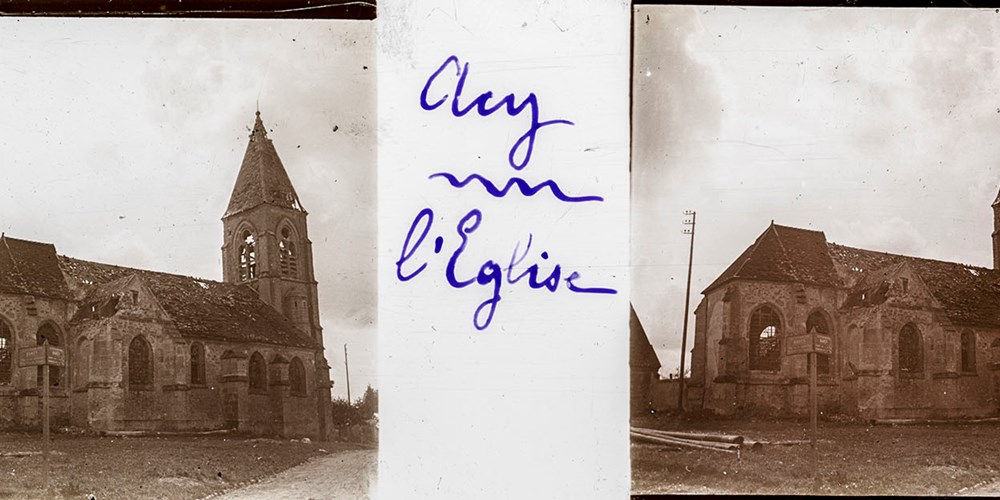 Acy
l'Eglise